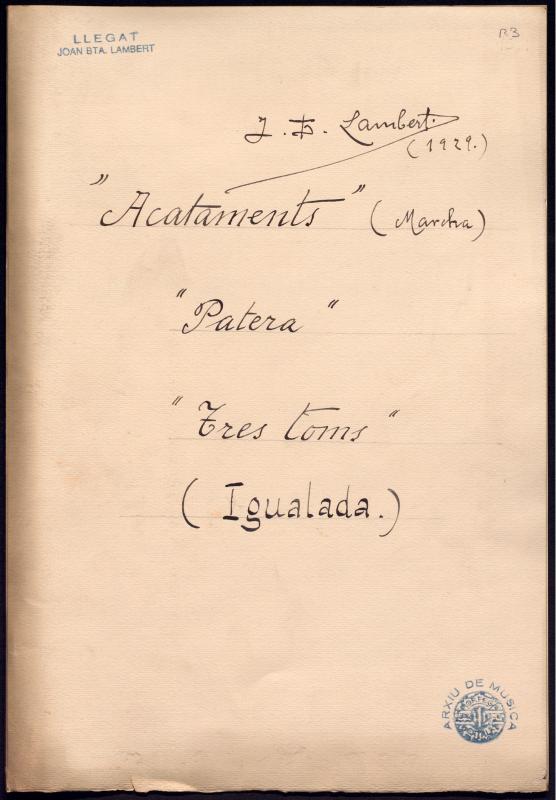 LLEGAT
JOAN BTA. LAMBERT
R3
J. B. Lambert.
(1929.)
"Acataments" (Marcha)
"Patera"
"Tres toms"
(Igualada.)
ARXIU DE MUSICA